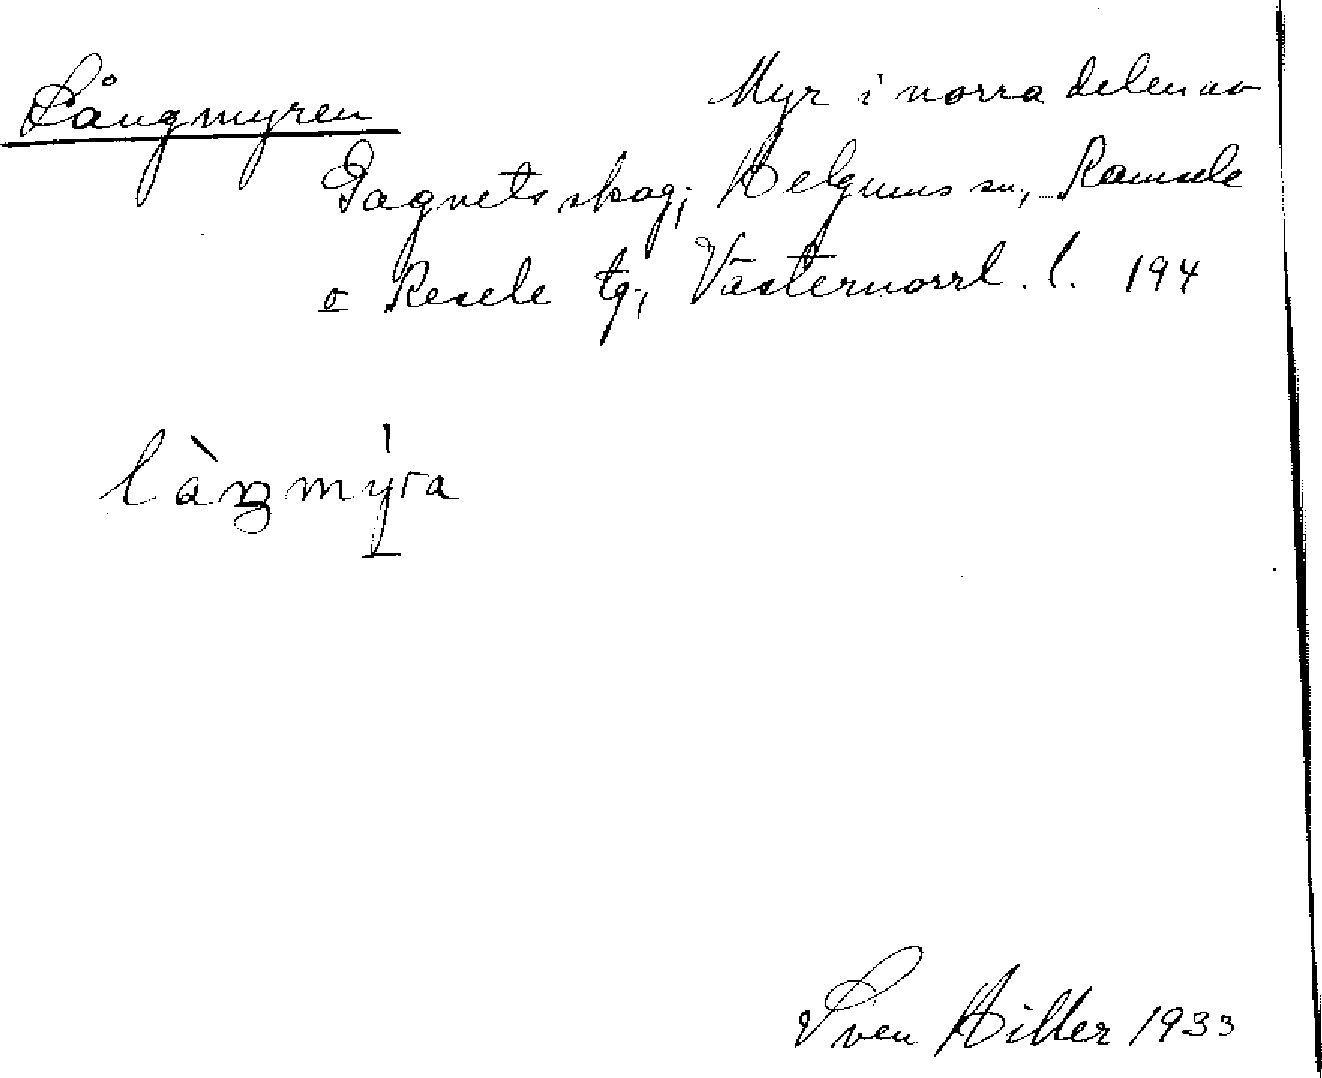 Långmyren
Myr i norra delen av
Gagnets skog; Helgums sn, Ramsele
o Resele tg; Västernorrl. l. 194
làŋmýra
Sven Hiller 1933